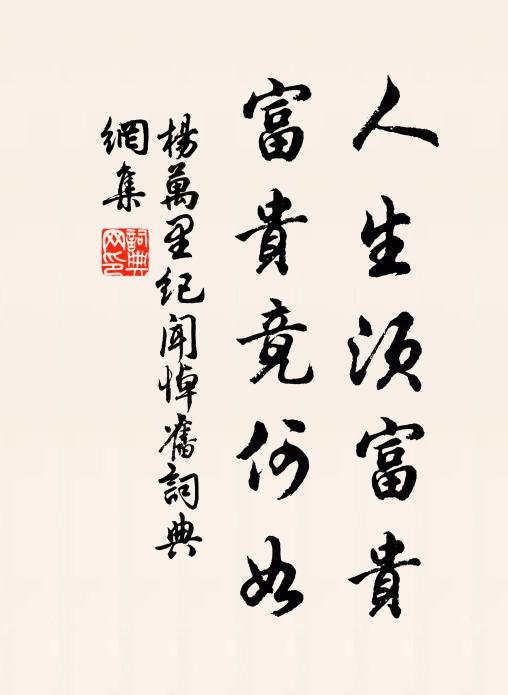 人生須富貴
富貴竟何如
楊萬里紀聞悼舊詞典
網集
詞典
網印